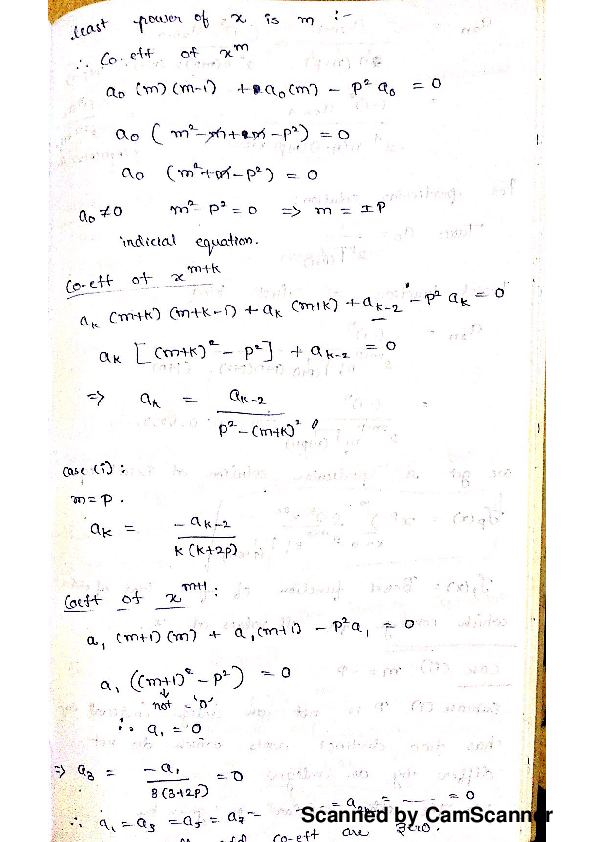 least power of x is m :-
∴ Co.eff of x^m
a₀ (m) (m-1) + a₀(m) - p² a₀ = 0
a₀ ( m² - m + m - p²) = 0
a₀ (m² + m - p²) = 0
a₀ ≠ 0 m² p² = 0 => m = ±p
indicial equation.
Co-eff of x^(m+k)
a_k (m+k) (m+k-1) + a_k (m+k) + a_(k-2) - p² a_k = 0
a_k [(m+k)² - p²] + a_(k-2) = 0
=> a_k = a_(k-2) / (p² - (m+k)²)
case (i) :
m = p .
a_k = -a_(k-2) / (k (k+2p))
Coeff of x^(m+1) :
a₁ (m+1) (m) + a₁ (m+1) - p² a₁ = 0
a₁ ((m+1)² - p²) = 0
↓
not = '0'
∴ a₁ = 0
=> a₃ = -a₁ / (3 (3+2p)) = 0
∴ a₁ = a₃ = a₅ = a₇ = = 0
co-eff are zero.
Scanned by CamScanner